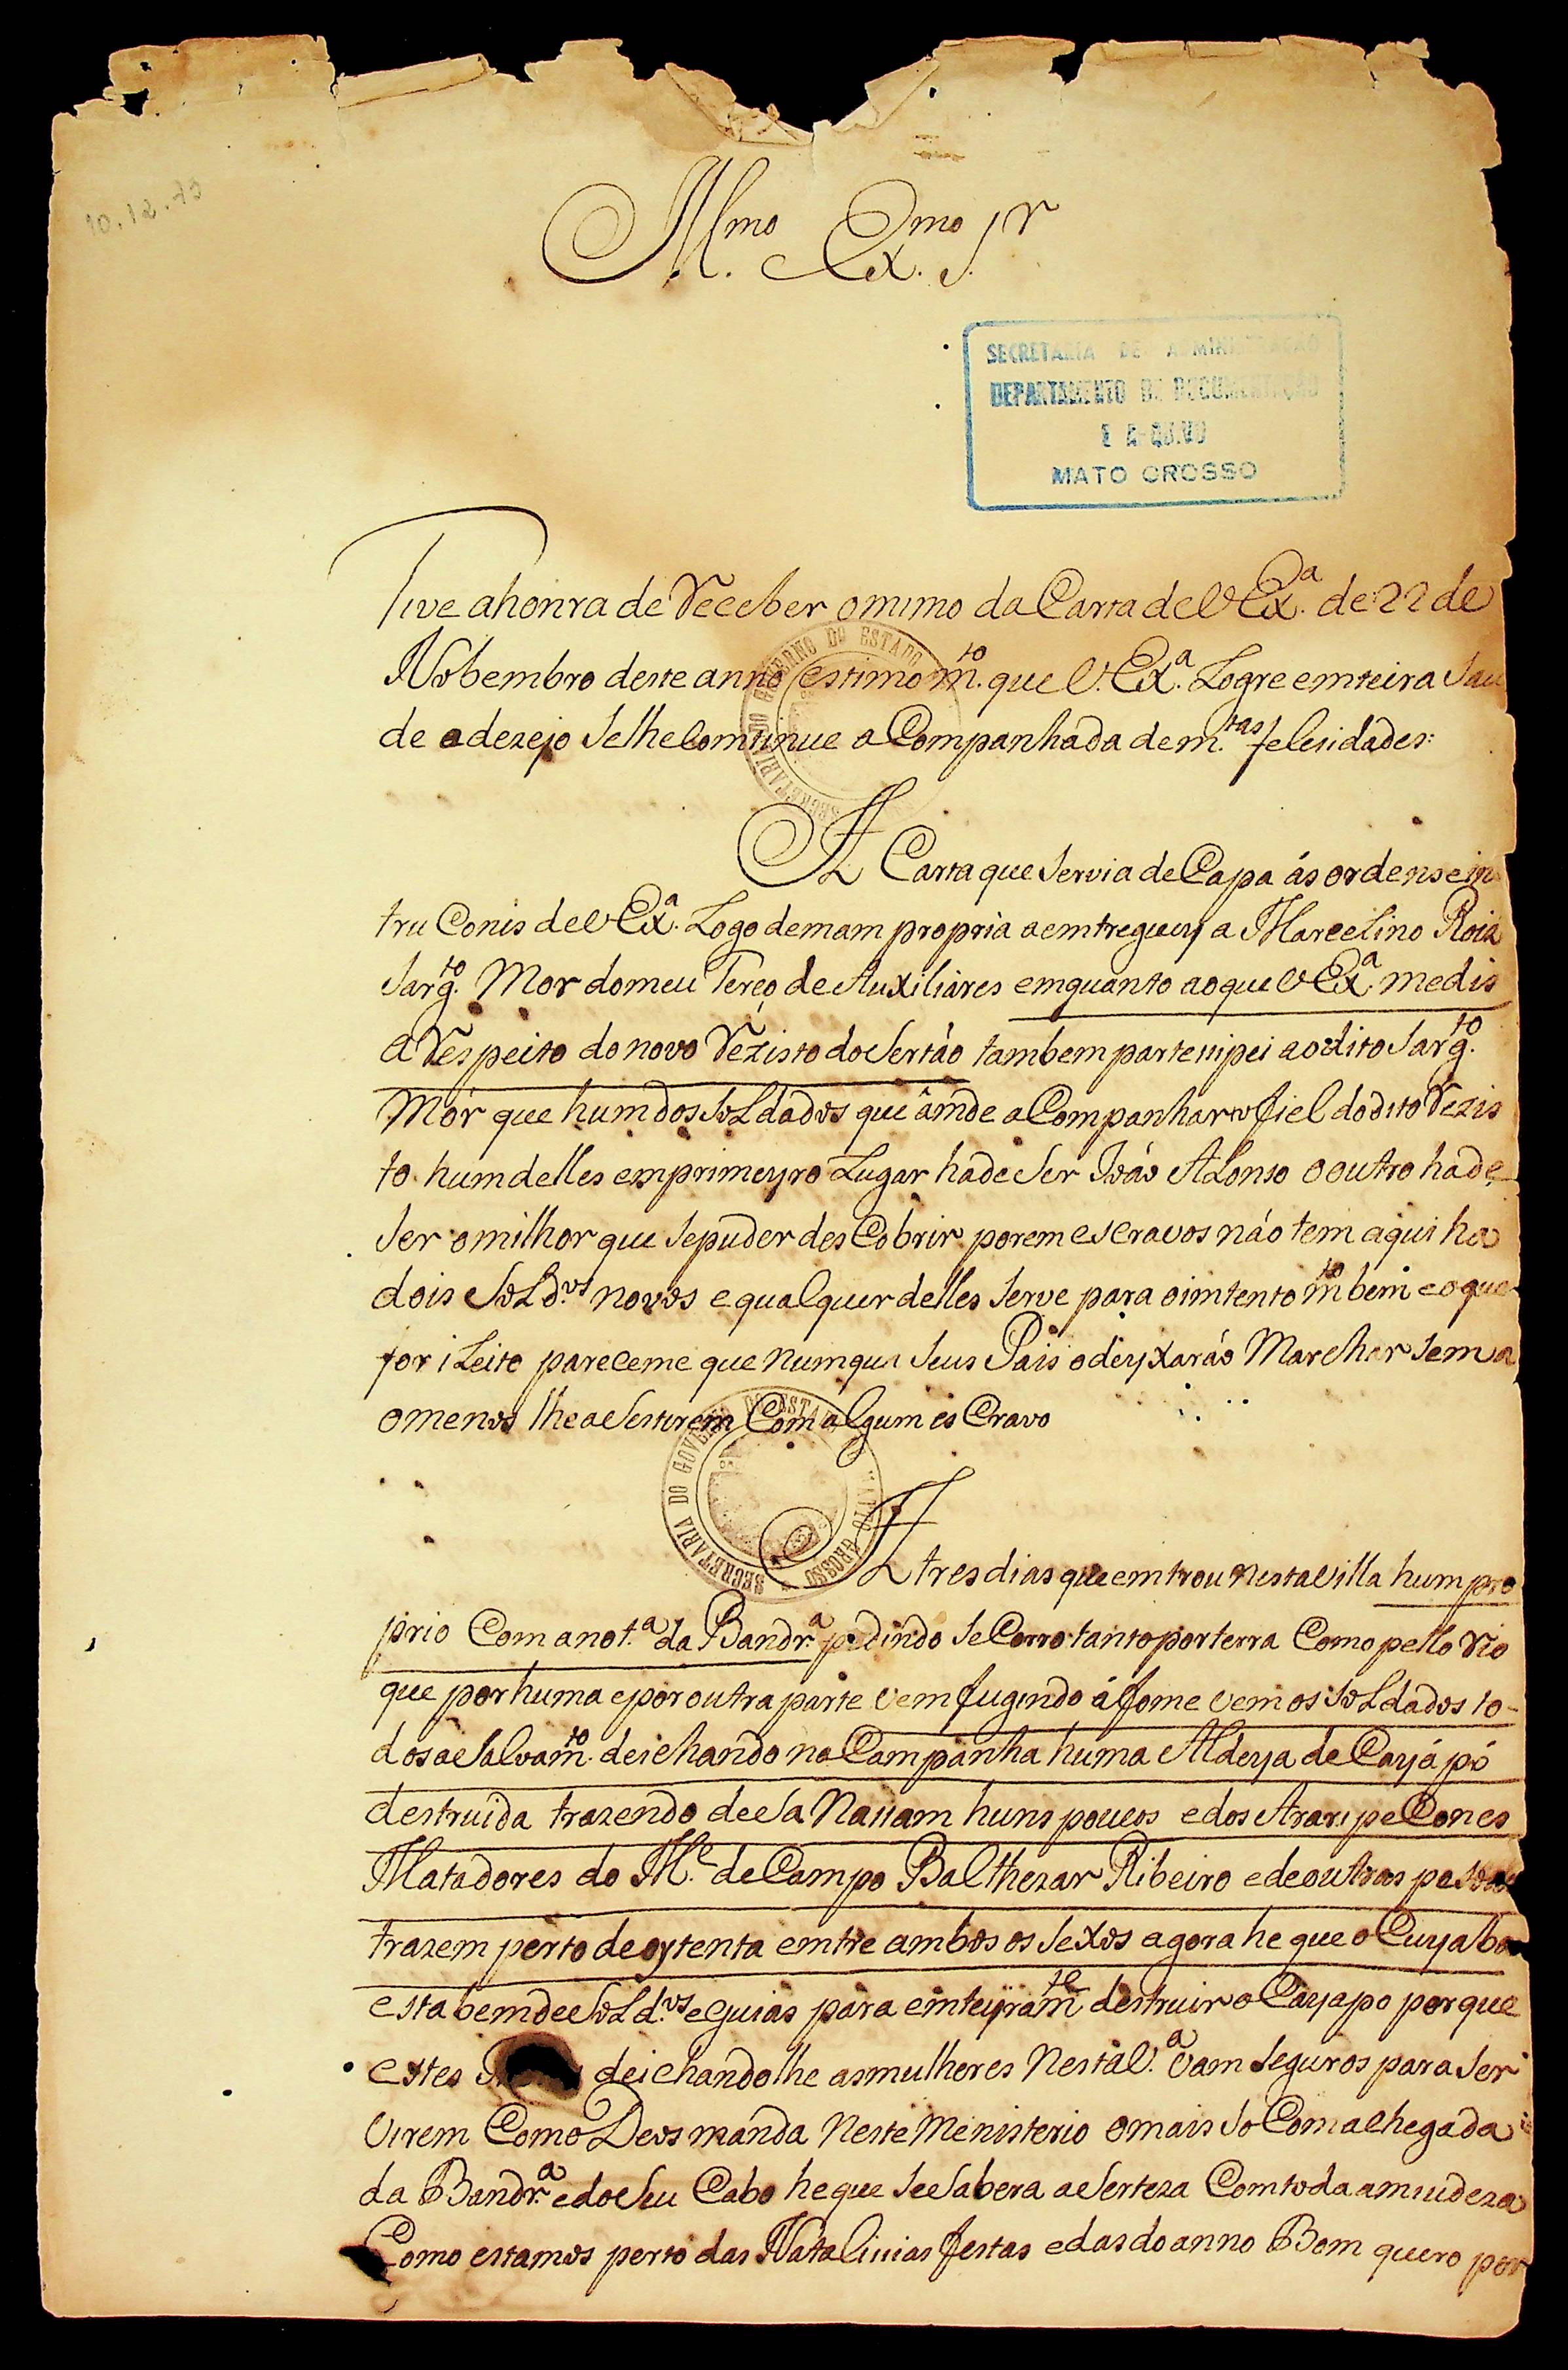 10.12.73
Illmo Exmo Sr
SECRETARIA DE ADMINISTRAÇÃO
DEPARTAMENTO DE DOCUMENTAÇÃO
E ARQUIVO
MATO GROSSO
Tive ahonra de receber omimo da Carta de V Ex.ª de 22 de
Nobembro deste anno estimo m.to que V. Ex.ª Logre emteira Sau
de e dezejo Selhe Comtinue a Companhada de m.tas felesidades:
A Carta que Servia de Capa ás ordens e in
tru Conis de V Ex.ª Logo demam propria aemtreguey a Marcelino Roiz
Sarg.to Mor do meu Terço de Auxiliares emquanto aoque V Ex.ª medis
a Respeito do novo Rezisto do Sertáo tambem partesipei ao dito Sarg.to
Mór que hum dos SoLdados que âmde a Companhar o fiel do dito Rezis
to. hum delles emprimeyro Lugar hade Ser Joáo ALonso o outro hade
Ser omilhor que Sepuder des Cobrir porem escravos náo tem aqui ha
dois SoLd.os novos e qualquer delles Serve para oimtento m.to bem e oque
for iLeito pareceme que numqua Seus Pais odeyxaráo Marchar Sem a
omenos lhe aSestirem Com algum es Cravo
A tres dias que emtrou nesta Villa hum pro
prio Com a not.ª da Bandr.ª pedindo SeCorro tanto por terra Como pello rio
que por huma epor outra parte Vem fugindo á fome Vem os SoLdados to-
dos a eSalvam.to deichando na Campanha huma ALdeya de Cayápó
destruida trazendo deeSa Nassam huns poucos e dos Araripe Cones
Matadores do M.e de Campo Balthezar Ribeiro e de outras pesoas
trazem perto de oytenta emtre ambos os Sexos agora he que o Cuyaba
esta bem de SoLd.os e Guias para emteyram.te destruir o Cayapo por que
estes deichandolhe as mulheres Nesta V.ª Vam Seguros para Ser
Virem Como Deos manda Neste Menisterio o mais So Com a chegada
da Bandr.ª e do Seu Cabo he que SeeSabera a Serteza Com toda a miudeza
Como estamos perto das Natalissias festas e das do anno Bom quero por
SECRETARIA DO GOVERNO DO ESTADO
SECRETARIA DO GOVERNO DO ESTADO MATTO GROSSO